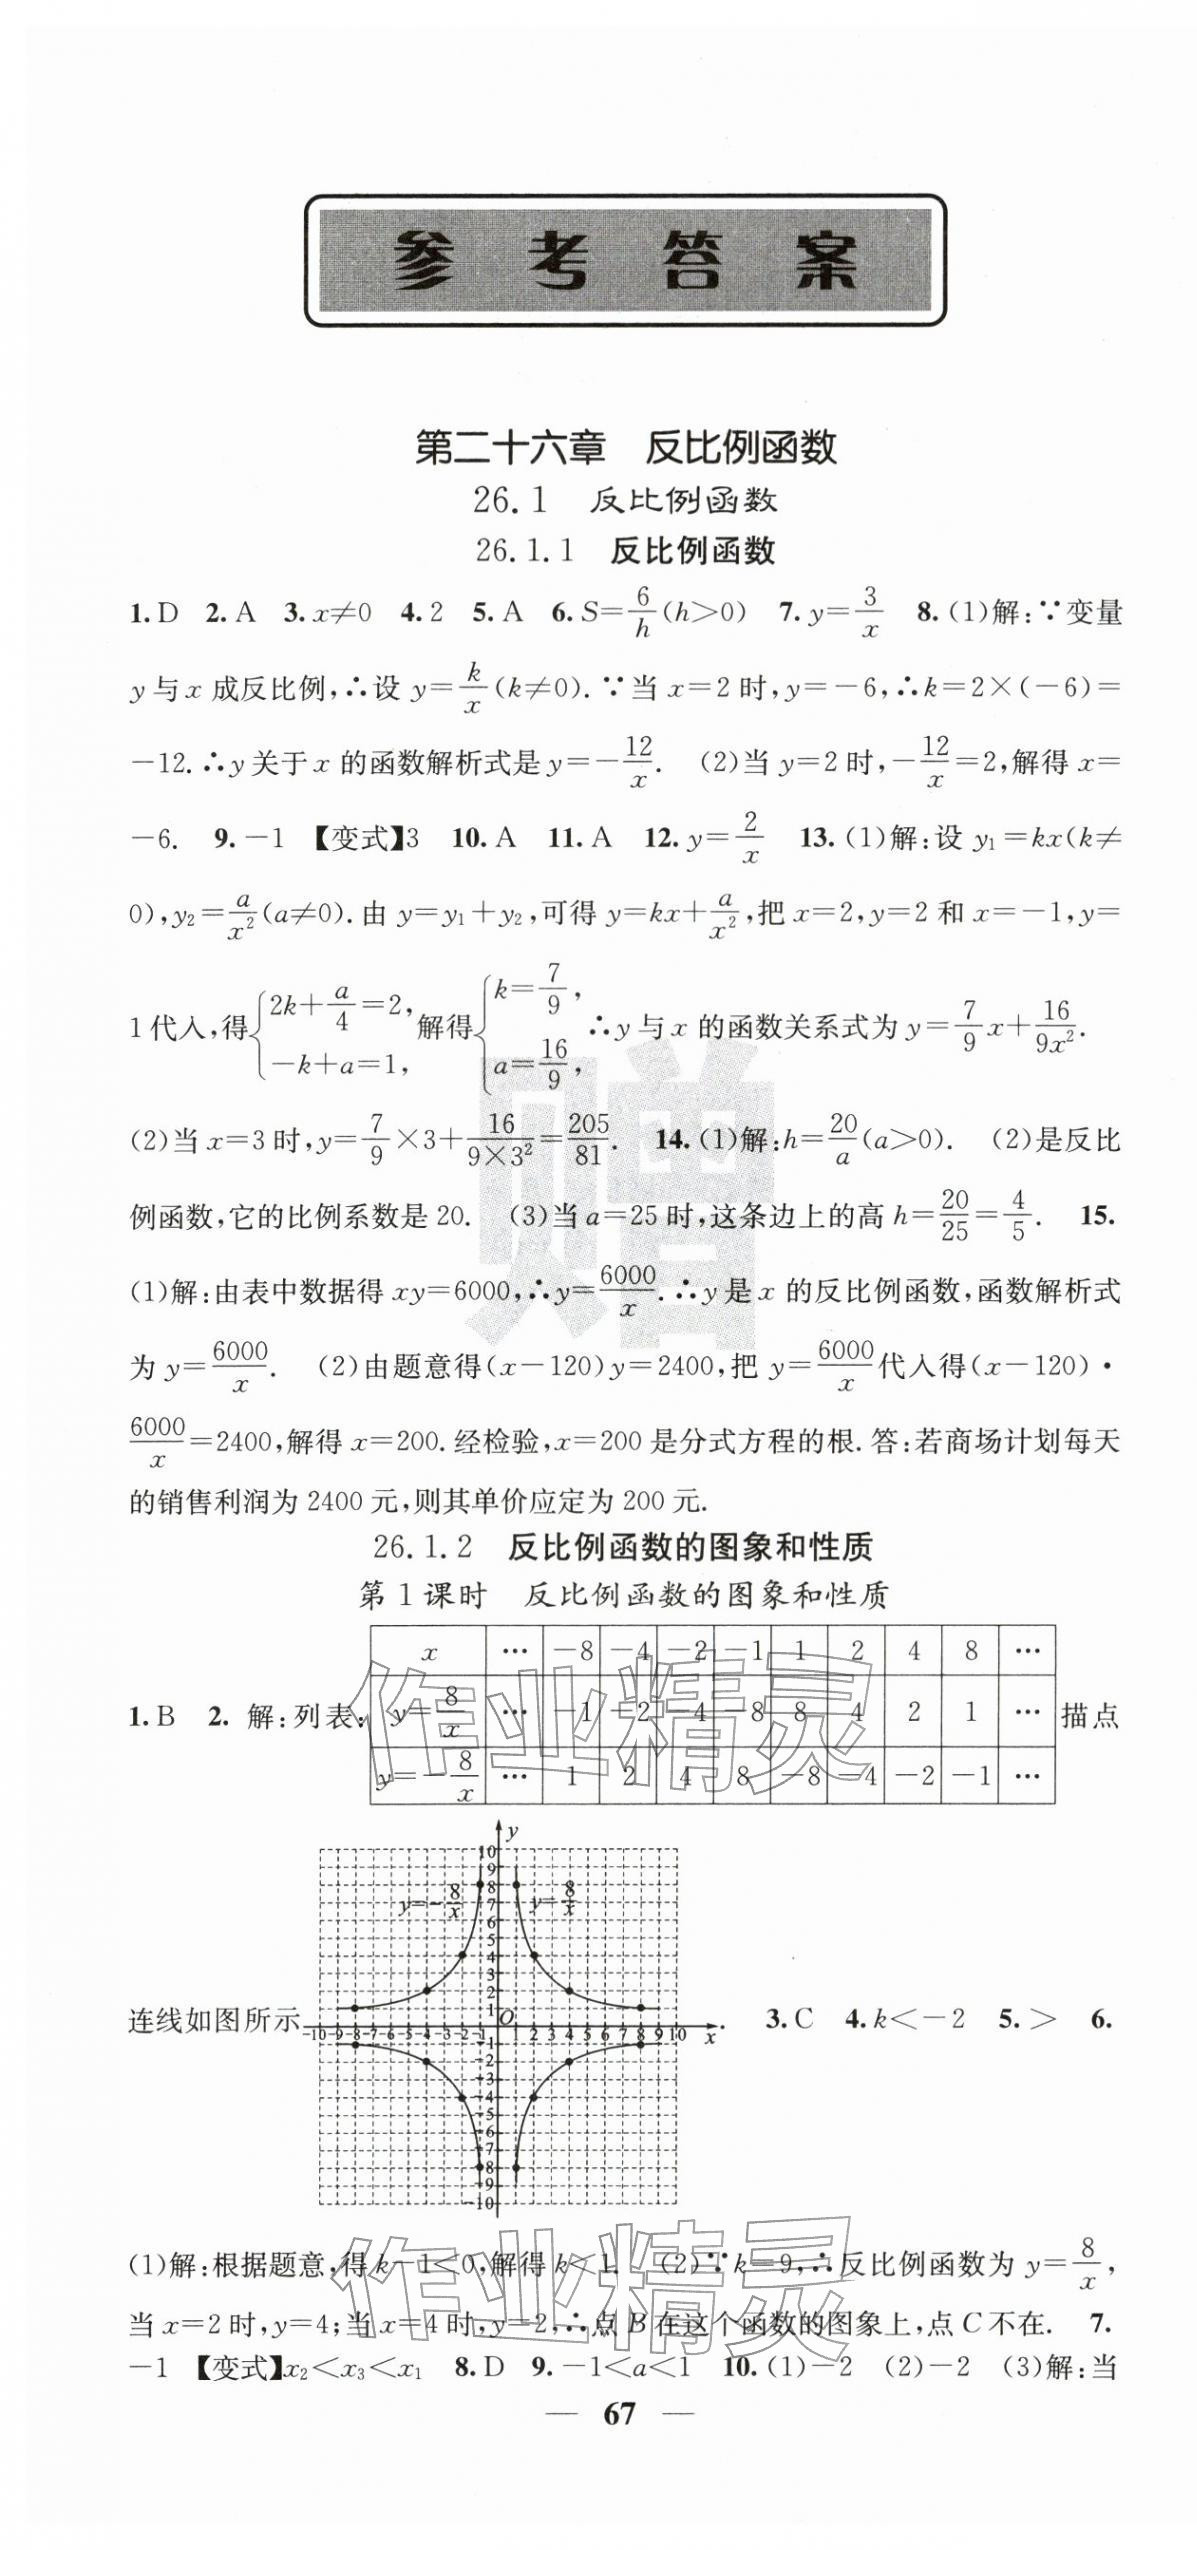 参考答案
第二十六章 反比例函数
26.1 反比例函数
26.1.1 反比例函数
1.D 2.A 3.x≠0 4.2 5.A 6.S=6/h(h>0) 7.y=3/x 8.(1)解:∵变量
y与x成反比例,∴设y=k/x(k≠0).∵当x=2时,y=-6,∴k=2×(-6)=
-12.∴y关于x的函数解析式是y=-12/x. (2)当y=2时,-12/x=2,解得x=
-6. 9.-1 【变式】3 10.A 11.A 12.y=2/x 13.(1)解:设y₁=kx(k≠
0),y₂=a/x²(a≠0).由y=y₁+y₂,可得y=kx+a/x²,把x=2,y=2和x=-1,y=
1代入,得{2k+a/4=2, -k+a=1, 解得{k=7/9, a=16/9, ∴y与x的函数关系式为y=7/9x+16/9x².
(2)当x=3时,y=7/9×3+16/9×3²=205/81. 14.(1)解:h=20/a(a>0). (2)是反比
例函数,它的比例系数是20. (3)当a=25时,这条边上的高h=20/25=4/5. 15.
(1)解:由表中数据得xy=6000,∴y=6000/x.∴y是x的反比例函数,函数解析式
为y=6000/x. (2)由题意得(x-120)y=2400,把y=6000/x代入得(x-120)·
6000/x=2400,解得x=200.经检验,x=200是分式方程的根.答:若商场计划每天
的销售利润为2400元,则其单价应定为200元.
赠
26.1.2 反比例函数的图象和性质
第1课时 反比例函数的图象和性质
x … -8 -4 -2 -1 1 2 4 8 …
1.B 2. 解:列表: y=8/x … -1 -2 -4 -8 8 4 2 1 … 描点
y=-8/x … 1 2 4 8 -8 -4 -2 -1 …
作业精灵
y
10
9
8
7
6
5
4
3
2
1
y=-8/x y=8/x
O
连线如图所示 -10-9-8-7-6-5-4-3-2-1 1 2 3 4 5 6 7 8 9 10 x . 3.C 4.k<-2 5.> 6.
-1
-2
-3
-4
-5
-6
-7
-8
-9
-10
(1)解:根据题意,得k-1<0,解得k<1. (2)∵k=9,∴反比例函数为y=8/x,
当x=2时,y=4;当x=4时,y=2,∴点B在这个函数的图象上,点C不在. 7.
-1 【变式】x₂<x₃<x₁ 8.D 9.-1<a<1 10.(1)-2 (2)-2 (3)解:当
作业精灵
— 67 —